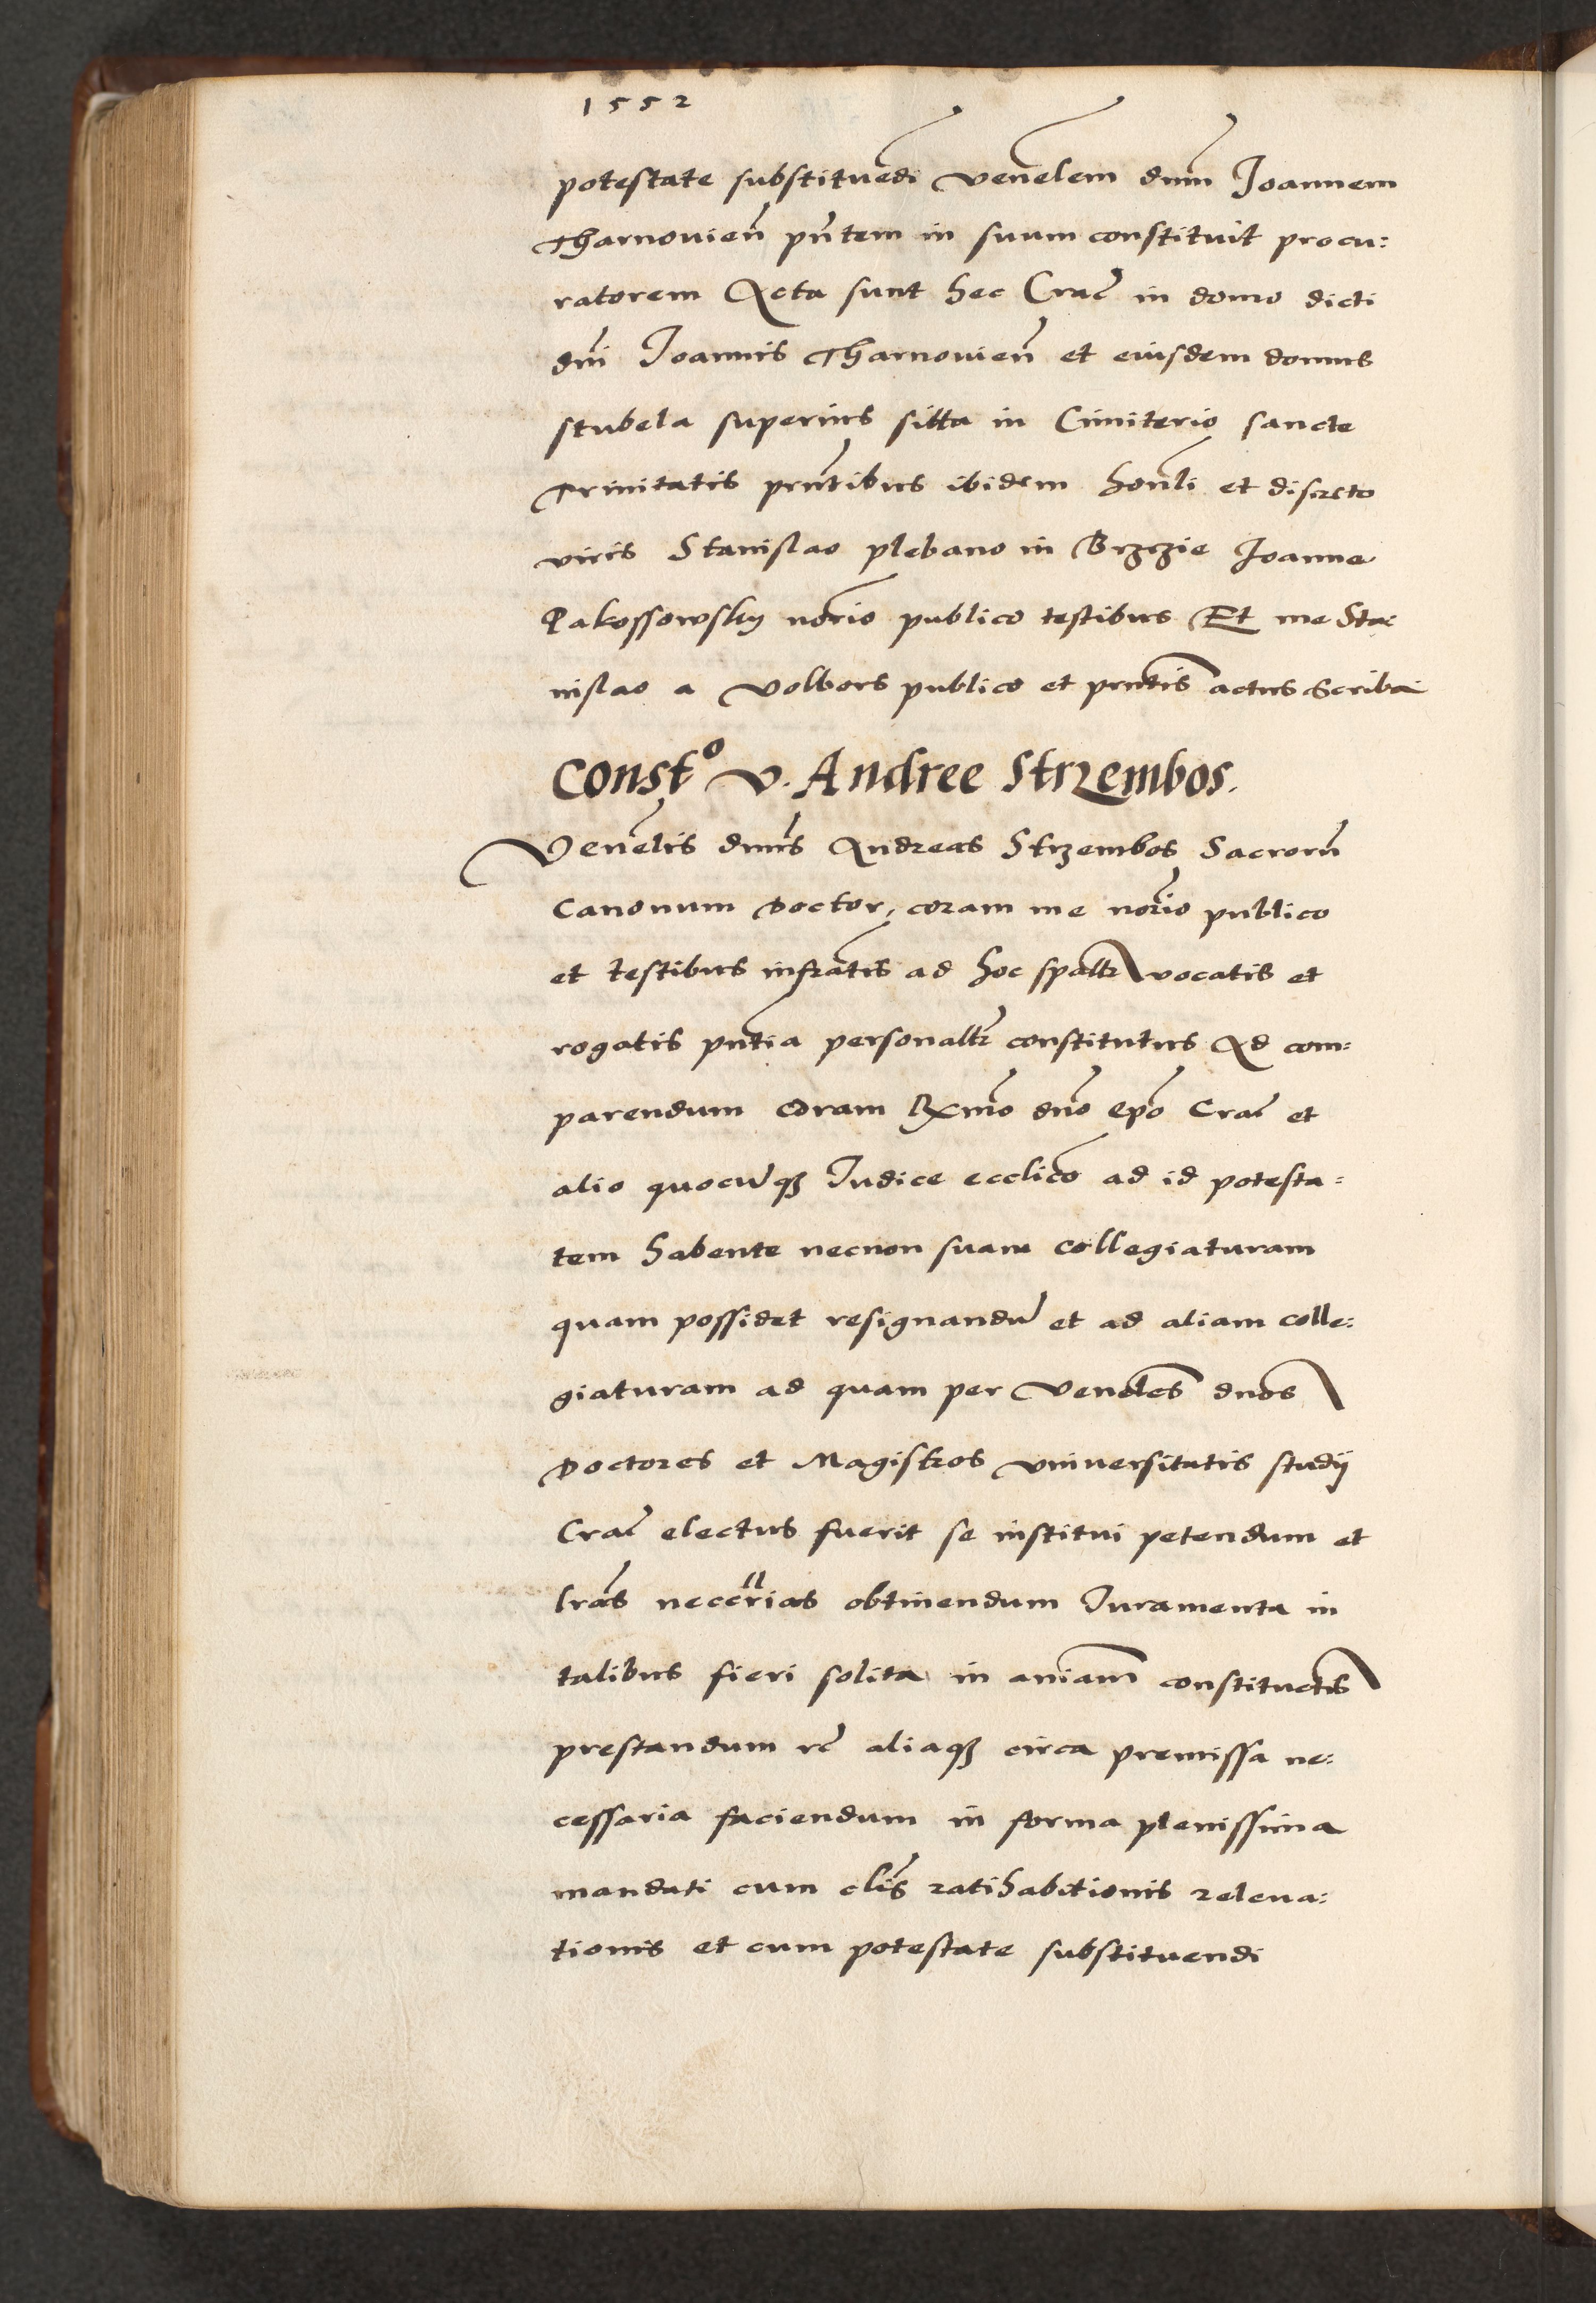 1552
potestate substituēdi venēlem dnm̄ Joannem
Tharnovieñ pn̄tem in suum constituit procu:
ratorem Acta sunt hec Crac̄ in domo dicti
dnī Joannis Tharnovieñ et eiusdem domus
stubela superius sitta in Cimiterio sancte
Trinitatis prn̄tibus ibidem honlī et discreto
viris Stanislao plebano in Brzezie Joanne
Pakossowsky norīo publico testibus Et me Sta:
nislao a Volbors publico et prntīs actus Scriba
Constᵒ v. Andree Strzembos.
Venēlis dnūs Andreas Strzembos Sacrorū
Canonum Doctor, coram me norīo publico
et testibus infrātis ad hoc spāltr vocatis et
rogatis pn̄tia personaltr̄ constitutus Ad com:
parendum coram Rx̄mo dnō epō Crac̄ et
alio quocūqꝫ Iudice ecclīco ad id potesta:
tem habente necnon suam collegiaturam
quam possidet resignandū et ad aliam colle:
giaturam ad quam per Venēles dnōs
Doctores et Magistros vniversitatis studij
Crac̄ electus fuerit se institui petendum et
lrās neccr̄ias obtinendum Iuramenta in
talibus fieri solita in aniam̄ constituctīs
prestandum rc̄ aliaqꝫ circa premissa ne:
cessaria faciendum in forma plenissima
mandati cum clīs ratihabitionis releua:
tionis et cum potestate substituendi